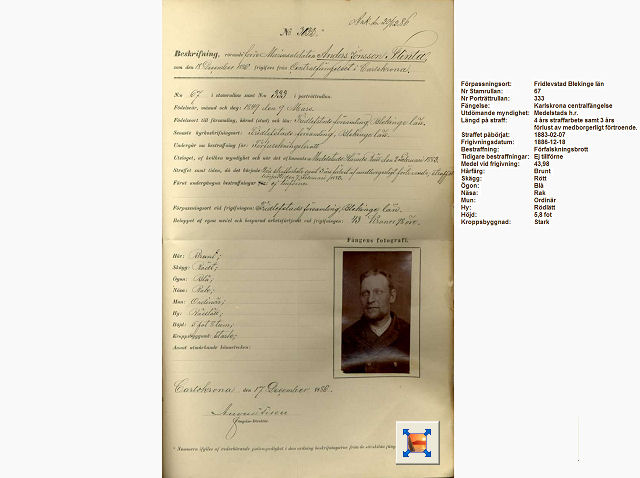 Ank. den 20/12 86
No 3133.
Beskrifning, rörande förre Marinsoldaten Anders Jonsson Stenta,
som den 18 December 1886 frigifves från Centralfängelset i Carlskrona.
N:o 67 i stamrullan samt N:o 333 i porträttrullan.
Födelseår, månad och dag: 1849 den 9 Mars.
Födelseort till församling, härad (stad) och län: Fridlefstads församling, Blekinge län.
Senaste kyrkskrifningsort: Fridlefstads församling, Blekinge län.
Undergår nu bestraffning för: Förfalskningsbrott
Utslaget, af hvilken myndighet och när det afkunnats: Medelstads Härads Rätt den 7 Februari 1883.
Straffet samt tiden, då det började:
Förut undergången bestraffning: ej tillförne
Förpassningsort vid frigifningen: Fridlefstads församling, Blekinge län.
Beloppet af egna medel och besparad arbetsförtjenst vid frigifningen: 43 Kronor 98 öre.
Hår: Brunt;
Skägg: Rödt;
Ögon: Blå;
Näsa: Rak;
Mun: Ordinär;
Hy: Rödlätt;
Höjd: 5 fot 8 tum;
Kroppsbyggnad: Stark;
Annat utmärkande kännetecken:
Fångens fotografi.
Carlskrona den 17 December 1886.
Fängelse-Direktör.
* Numrera ifylles af vederbörande polismyndighet i den ordning beskrifningarna från de särskilda fäng
Förpassningsort: Fridlevstad Blekinge län
Nr Stamrullan: 67
Nr Porträttrullan: 333
Fängelse: Karlskrona centralfängelse
Utdömande myndighet: Medelstads h.r.
Längd på straff: 4 års straffarbete samt 3 års
förlust av medborgerligt förtroende.
Straffet påbörjat: 1883-02-07
Frigivningsdatum: 1886-12-18
Bestraffning: Förfalskningsbrott
Tidigare bestraffningar: Ej tillförne
Medel vid frigivning: 43,98
Hårfärg: Brunt
Skägg: Rött
Ögon: Blå
Näsa: Rak
Mun: Ordinär
Hy: Rödlätt
Höjd: 5,8 fot
Kroppsbyggnad: Stark